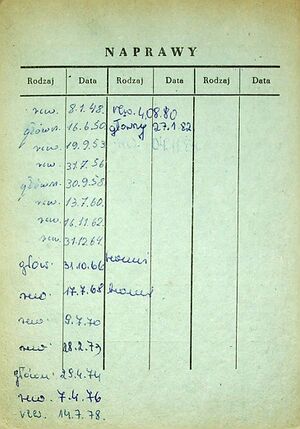 NAPRAWY
Rodzaj Data Rodzaj Data Rodzaj Data
rew. 8.1.48. rew. 4.08.80
główn. 16.6.50 główny 27.1.82
rew. 19.9.53
rew. 31.7.56
główn. 30.9.58.
rew. 13.7.60.
rew. 16.11.62
rew. 31.12.64
głów. 31.10.66
rew. 17.7.68
rew. 9.7.70
rew. 28.2.73
główn. 29.4.74
rew. 7.4.76
rew. 14.7.78.